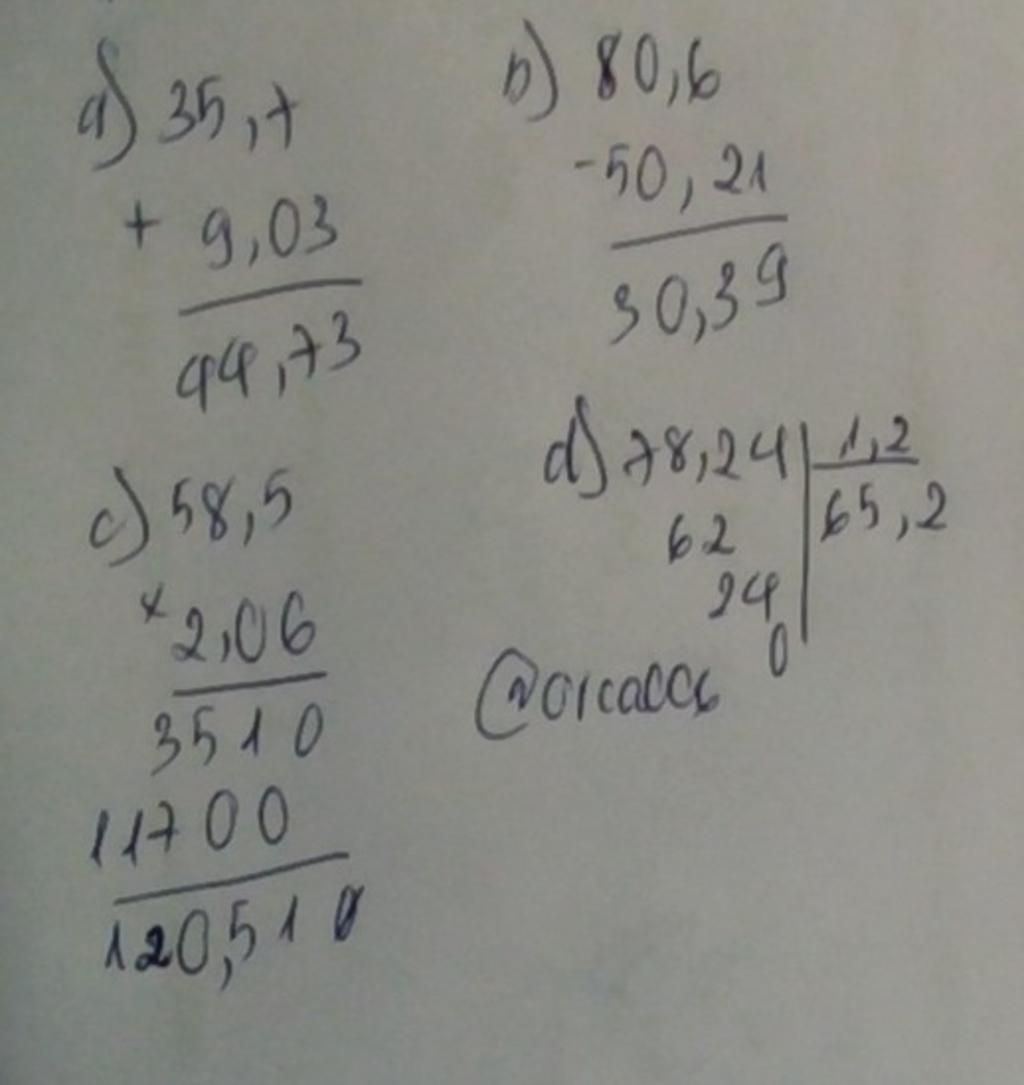 a) 35,7
+ 9,03
44,73
b) 80,6
-50,21
30,39
c) 58,5
x 2,06
3510
11700
120,510
d) 78,24 1,2
62 65,2
24
0